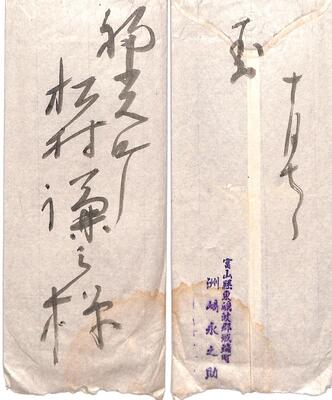 福光町
松村謙三様
十月七日
富山縣東礪波郡城端町
洲崎永之助